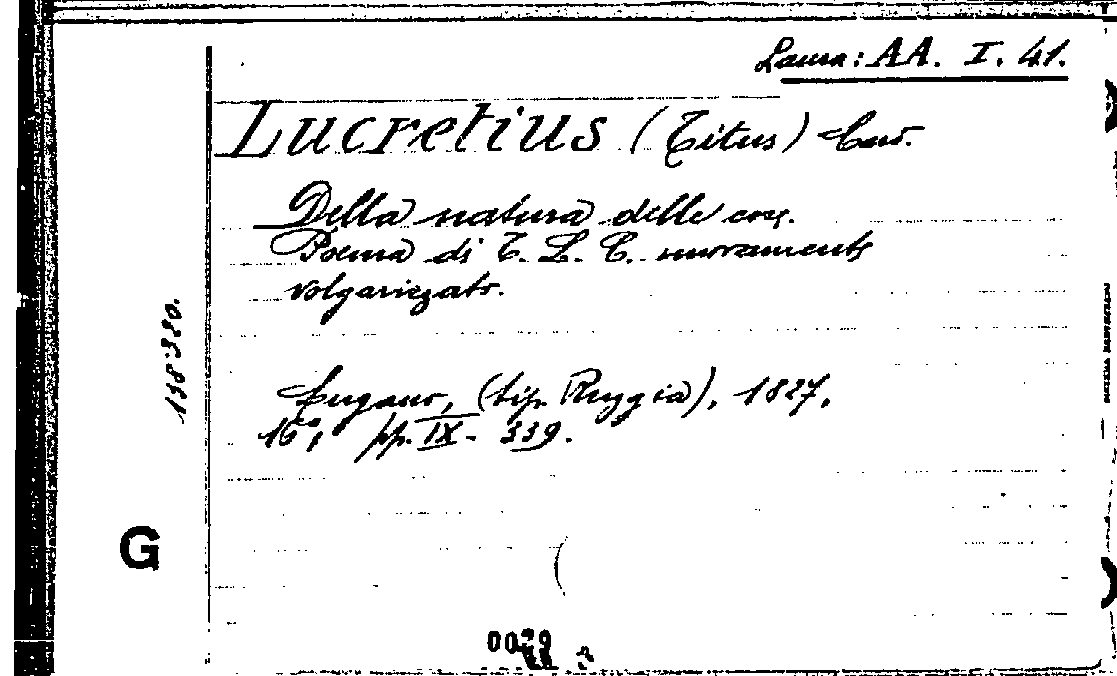 Laura: AA. I. 41.
Lucretius (Titus) Caro.
Della natura delle cose.
Poema di T. L. C. nuovamente
volgarizzato.
138320.
Lugano, (tip. Ruggia), 1827,
16°, pp. IX - 339.
G